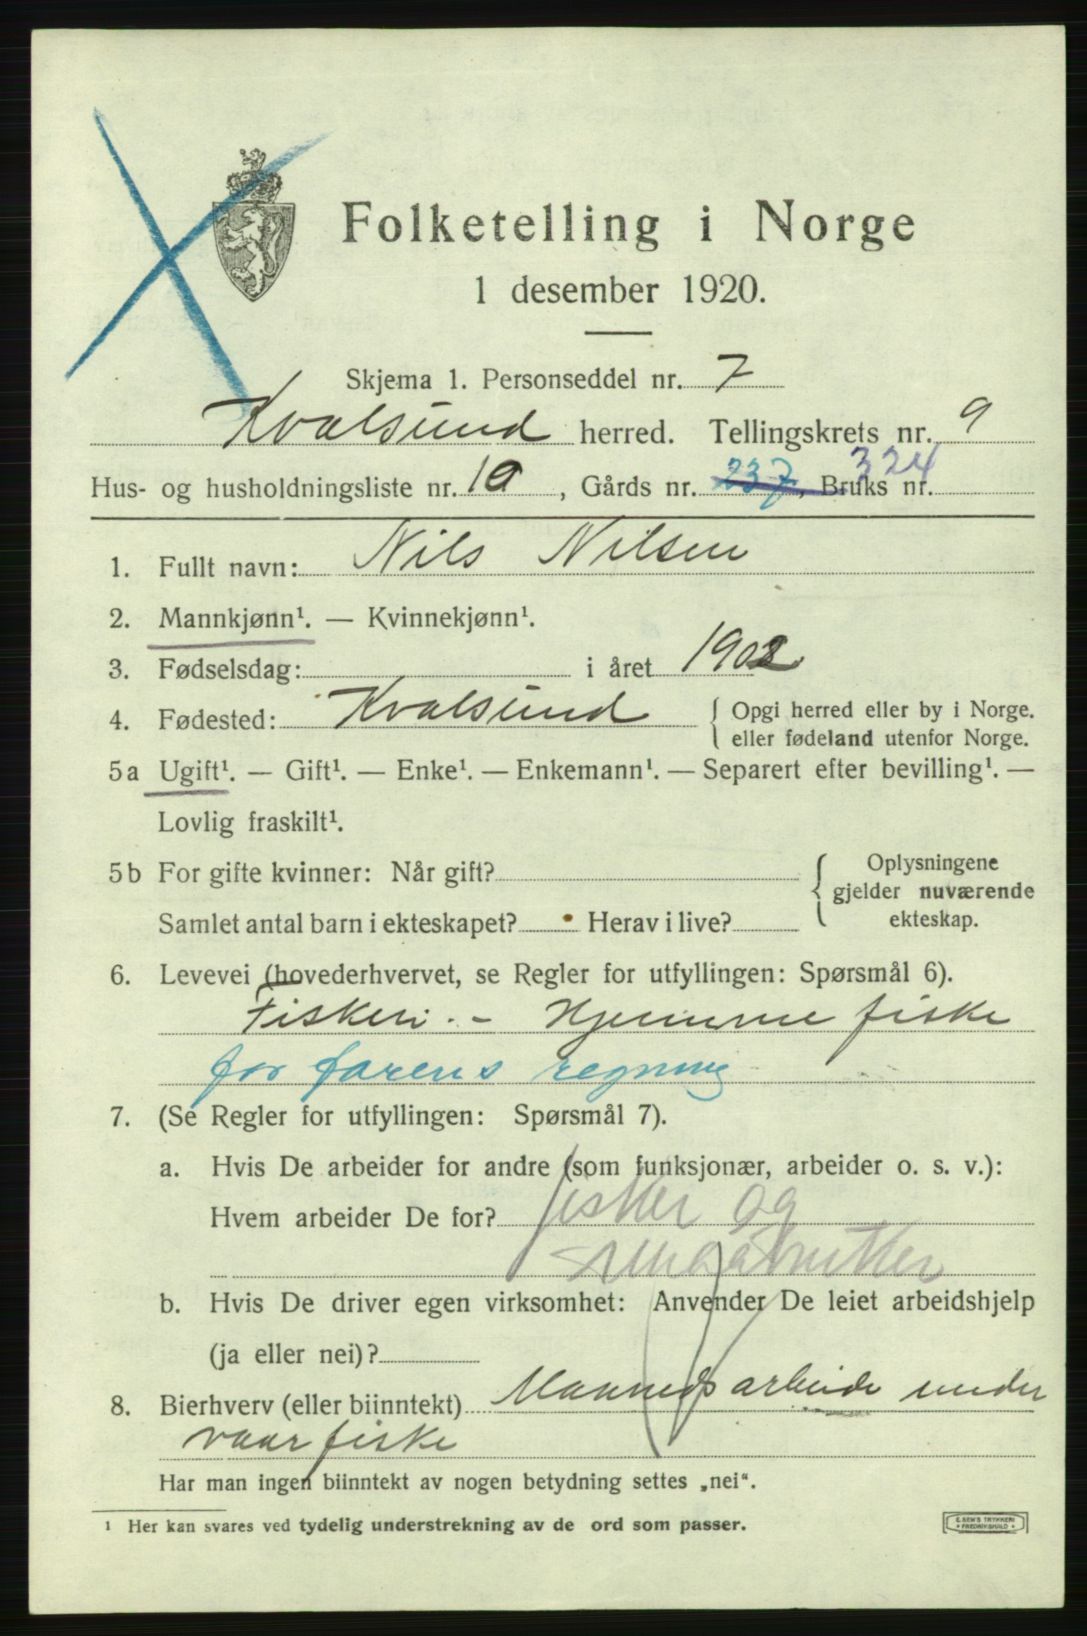 Folketelling i Norge
1 desember 1920.
Skjema 1. Personseddel nr. 7
Kvalsund herred. Tellingskrets nr. 9
324
Hus- og husholdningsliste nr. 10, Gårds nr. 237, Bruks nr.
1. Fullt navn: Nils Nilsen
2. Mannkjønn¹. — Kvinnekjønn¹.
3. Fødselsdag: i året 1902
4. Fødested: Kvalsund { Opgi herred eller by i Norge.
eller fødeland utenfor Norge.
5a Ugift¹. — Gift¹. — Enke¹. — Enkemann¹. — Separert efter bevilling¹. —
Lovlig fraskilt¹.
5b For gifte kvinner: Når gift?
Samlet antal barn i ekteskapet? Herav i live?
{ Oplysningene
gjelder nuværende
ekteskap.
6. Levevei (hovederhvervet, se Regler for utfyllingen: Spørsmål 6).
Fiskeri. - Hjemme fiske
for farens regning
7. (Se Regler for utfyllingen: Spørsmål 7).
a. Hvis De arbeider for andre (som funksjonær, arbeider o. s. v.):
Hvem arbeider De for? fisker og
smaabruker
b. Hvis De driver egen virksomhet: Anvender De leiet arbeidshjelp
(ja eller nei)?
8. Bierhverv (eller biinntekt) Mannds arbeide under
vaar fiske
Har man ingen biinntekt av nogen betydning settes „nei“.
¹ Her kan svares ved tydelig understrekning av de ord som passer.